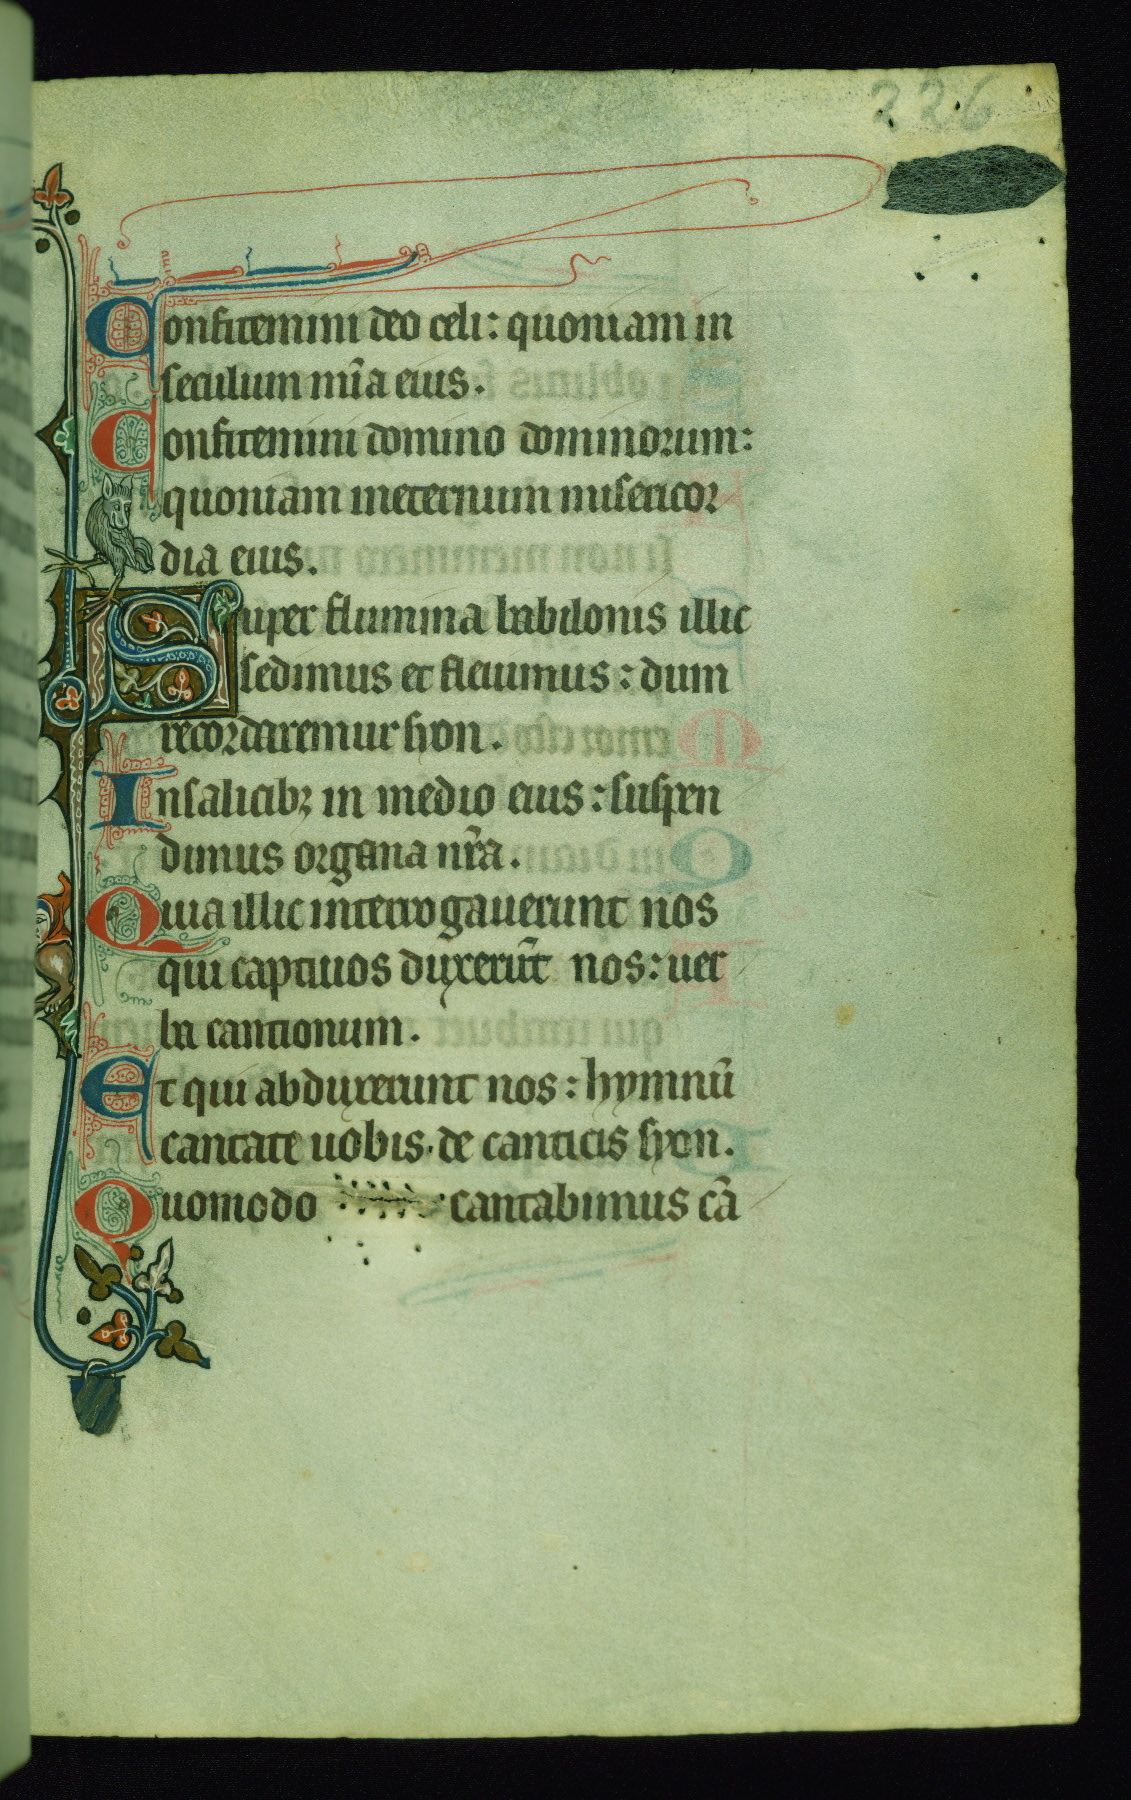 226
Confitemini deo celi: quoniam in
seculum mīa eius.
Confitemini domino dominorum:
quoniam ineternum misericor
dia eius.
Super flumina babilonis illic
sedimus et fleuimus: dum
recordaremur syon.
Insalicibꝫ in medio eius: suspen
dimus organa nr̄a.
Quia illic interrogauerunt nos
qui captiuos duxerūt nos: uer
ba cantionum.
Et qui abduxerunt nos: hymnū
cantate uobis. de canticis syon.
Quomodo cantabimus cā